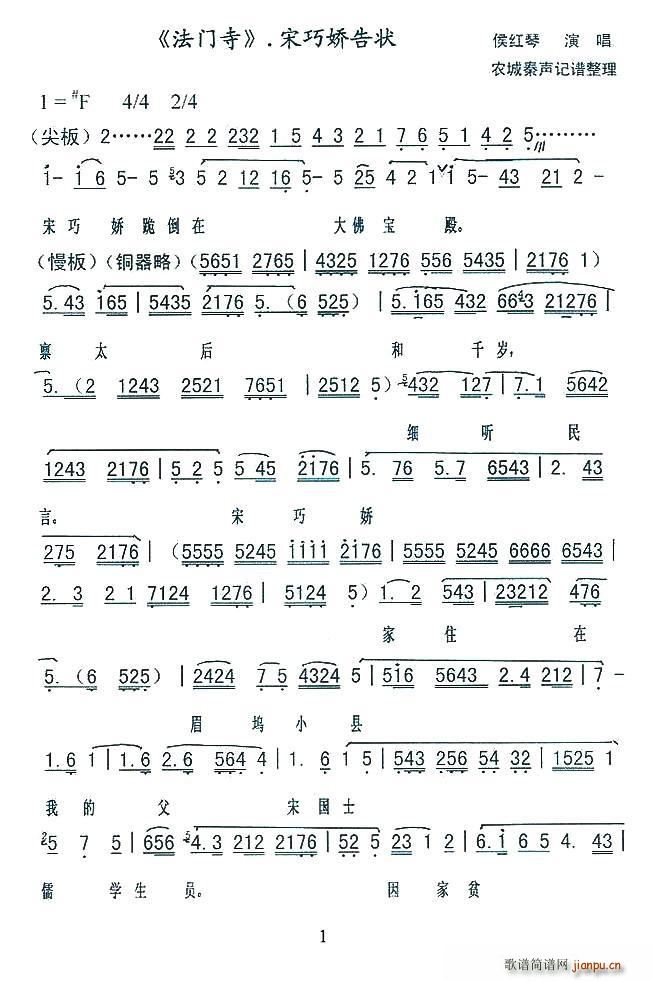 《法门寺》.宋巧娇告状
侯红琴 演 唱
农城秦声记谱整理
1=#F 4/4 2/4
(尖板) 2……22 2 2 232 1 5 4 3 2 1 7 6 5 1 4 2 5………
i- i 6 5- 5 3 5 2 12 16 5- 5 25 4 2 1 i 5- 43 21 2 -
宋 巧 娇 跪 倒 在 大 佛 宝 殿。
(慢板)(铜器略)(5651 2765|4325 1276 556 5435|2176 1)
5.43 i65|5435 2176 5.(6 525)|5.i65 432 6643 21276|
禀 太 后 和 千 岁,
5.(2 1243 2521 7651|2512 5) 432 127|7.1 5642
细 听 民
1243 2176|5 2 5 5 45 2176|5. 76 5.7 6543|2. 43
言。 宋 巧 娇
275 2176|(5555 5245 iiii 2176|5555 5245 6666 6543|
2. 3 2 1 7124 1276|5124 5) 1. 2 543|23212 476
家 住 在
5.(6 525)|2424 7 5 4324 5|516 5643 2.4 212|7 -
眉 坞 小 县
1.6 1|1.6 2.6 564 4|1. 6 1 5|543 256 54 32|1525 1
我 的 父 宋 国 士
5 7 5|656 4.3 212 2176|52 5 23 1 2|6.i 6 5 4. 43|
儒 学 生 员。 因 家 贫
1
歌谱简谱网
jianpu.cn